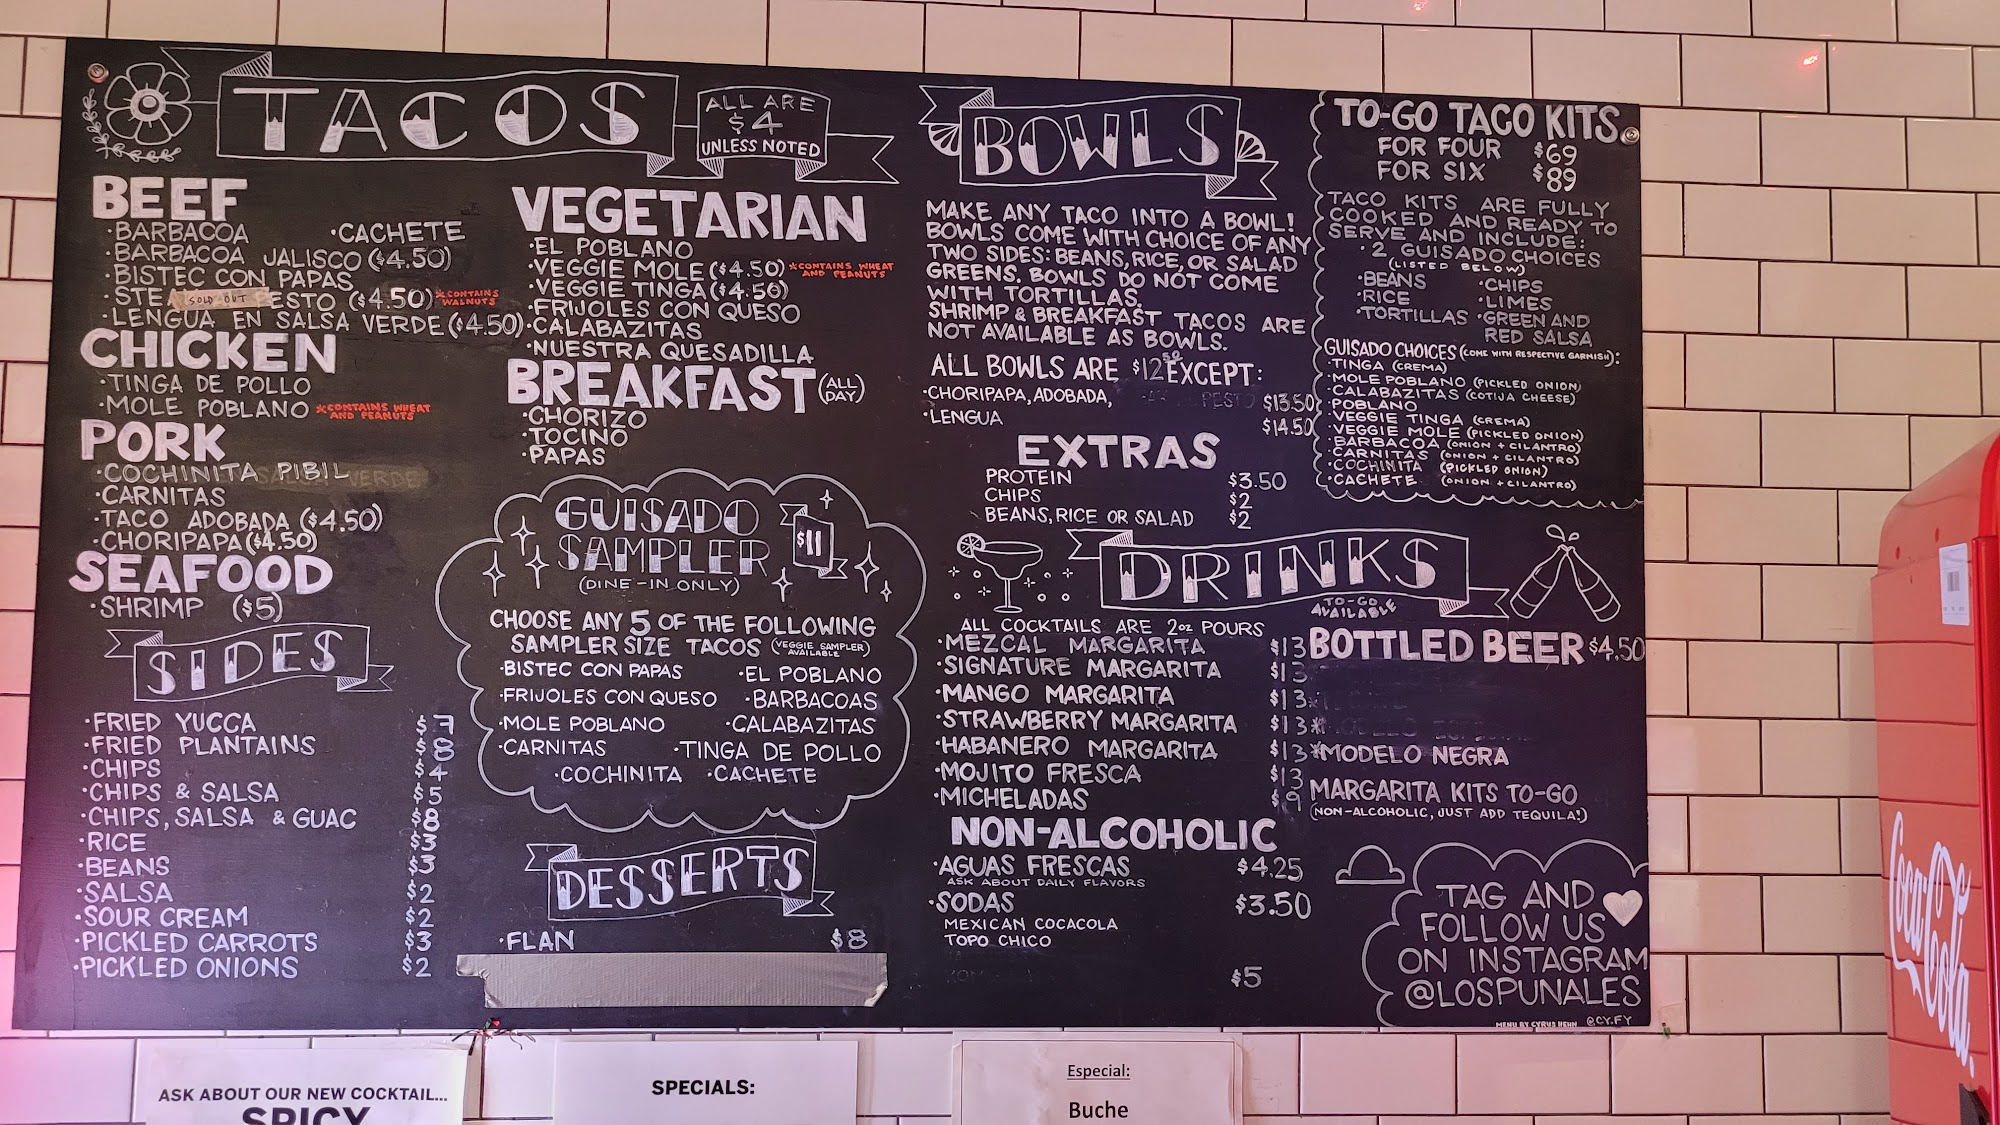 TACOS
ALL ARE
$4
UNLESS NOTED
BEEF
·BARBACOA ·CACHETE
·BARBACOA JALISCO ($4.50)
·BISTEC CON PAPAS
·STEA SOLD OUT PESTO ($4.50) *CONTAINS WALNUTS
·LENGUA EN SALSA VERDE ($4.50)
CHICKEN
·TINGA DE POLLO
·MOLE POBLANO *CONTAINS WHEAT AND PEANUTS
PORK
·COCHINITA PIBIL
·CARNITAS
·TACO ADOBADA ($4.50)
·CHORIPAPA ($4.50)
SEAFOOD
·SHRIMP ($5)
SIDES
·FRIED YUCCA $7
·FRIED PLANTAINS $8
·CHIPS $4
·CHIPS & SALSA $5
·CHIPS, SALSA & GUAC $8
·RICE $3
·BEANS $3
·SALSA $2
·SOUR CREAM $2
·PICKLED CARROTS $3
·PICKLED ONIONS $2
VEGETARIAN
·EL POBLANO
·VEGGIE MOLE ($4.50) *CONTAINS WHEAT AND PEANUTS
·VEGGIE TINGA ($4.50)
·FRIJOLES CON QUESO
·CALABAZITAS
·NUESTRA QUESADILLA
BREAKFAST (ALL DAY)
·CHORIZO
·TOCINO
·PAPAS
GUISADO
SAMPLER $11
(DINE-IN ONLY)
CHOOSE ANY 5 OF THE FOLLOWING
SAMPLER SIZE TACOS (VEGGIE SAMPLER AVAILABLE)
·BISTEC CON PAPAS ·EL POBLANO
·FRIJOLES CON QUESO ·BARBACOAS
·MOLE POBLANO ·CALABAZITAS
·CARNITAS ·TINGA DE POLLO
·COCHINITA ·CACHETE
DESSERTS
·FLAN $8
BOWLS
MAKE ANY TACO INTO A BOWL!
BOWLS COME WITH CHOICE OF ANY
TWO SIDES: BEANS, RICE, OR SALAD
GREENS. BOWLS DO NOT COME
WITH TORTILLAS.
SHRIMP & BREAKFAST TACOS ARE
NOT AVAILABLE AS BOWLS.
ALL BOWLS ARE $12.50 EXCEPT:
·CHORIPAPA, ADOBADA, PESTO $13.50
·LENGUA $14.50
EXTRAS
PROTEIN $3.50
CHIPS $2
BEANS, RICE OR SALAD $2
DRINKS
TO-GO AVAILABLE
ALL COCKTAILS ARE 2oz POURS
·MEZCAL MARGARITA $13
·SIGNATURE MARGARITA $13
·MANGO MARGARITA $13
·STRAWBERRY MARGARITA $13
·HABANERO MARGARITA $13
·MOJITO FRESCA $13
·MICHELADAS $9
NON-ALCOHOLIC
·AGUAS FRESCAS $4.25
ASK ABOUT DAILY FLAVORS
·SODAS $3.50
MEXICAN COCACOLA
TOPO CHICO
$5
BOTTLED BEER $4.50
*MODELO NEGRA
MARGARITA KITS TO-GO
(NON-ALCOHOLIC, JUST ADD TEQUILA!)
TO-GO TACO KITS
FOR FOUR $69
FOR SIX $89
TACO KITS ARE FULLY
COOKED AND READY TO
SERVE AND INCLUDE:
·2 GUISADO CHOICES
(LISTED BELOW)
·BEANS ·CHIPS
·RICE ·LIMES
·TORTILLAS ·GREEN AND
RED SALSA
GUISADO CHOICES (COME WITH RESPECTIVE GARNISH):
·TINGA (CREMA)
·MOLE POBLANO (PICKLED ONION)
·CALABAZITAS (COTIJA CHEESE)
·POBLANO
·VEGGIE TINGA (CREMA)
·VEGGIE MOLE (PICKLED ONION)
·BARBACOA (ONION + CILANTRO)
·CARNITAS (ONION + CILANTRO)
·COCHINITA (PICKLED ONION)
·CACHETE (ONION + CILANTRO)
TAG AND
FOLLOW US
ON INSTAGRAM
@LOSPUNALES
MENU BY CYRUS HEHN @CY.FY
ASK ABOUT OUR NEW COCKTAIL...
SPICY
SPECIALS:
Especial:
Buche
Coca-Cola